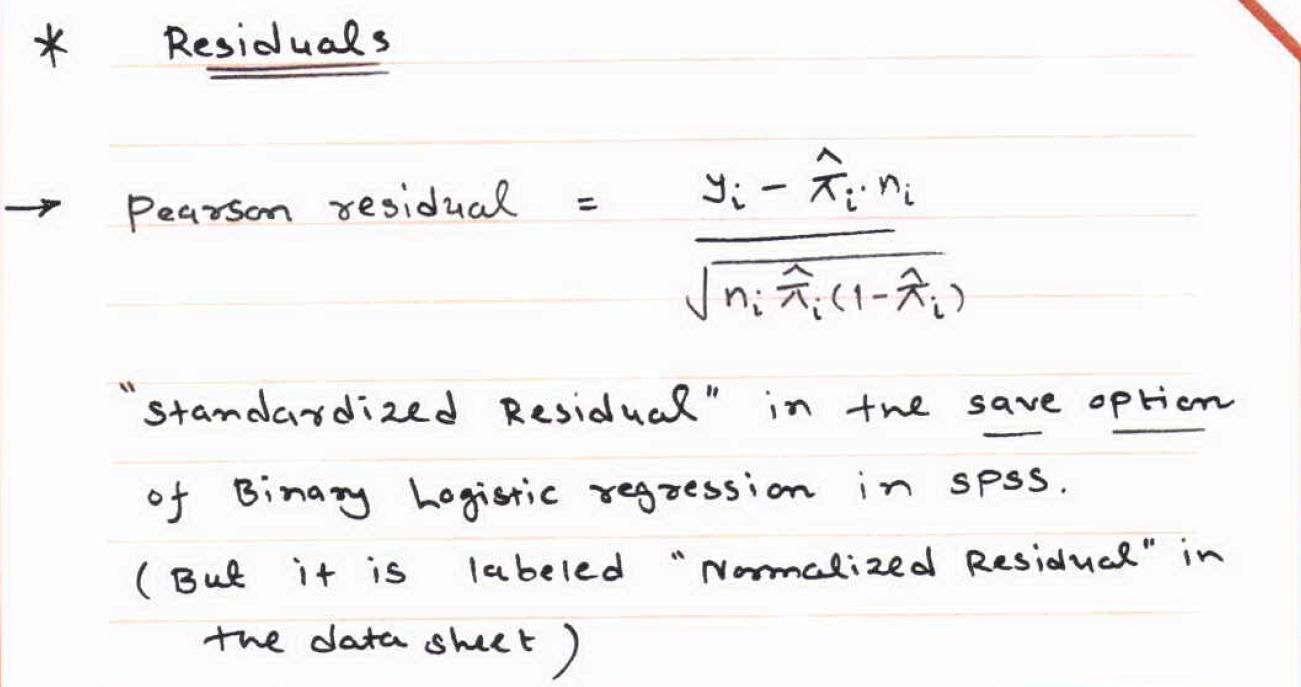 * Residuals
→ Pearson residual = (yᵢ - π̂ᵢ·nᵢ) / √(nᵢ π̂ᵢ(1-π̂ᵢ))
"Standardized Residual" in the save option
of Binary Logistic regression in SPSS.
(But it is labeled "Normalized Residual" in
the data sheet)